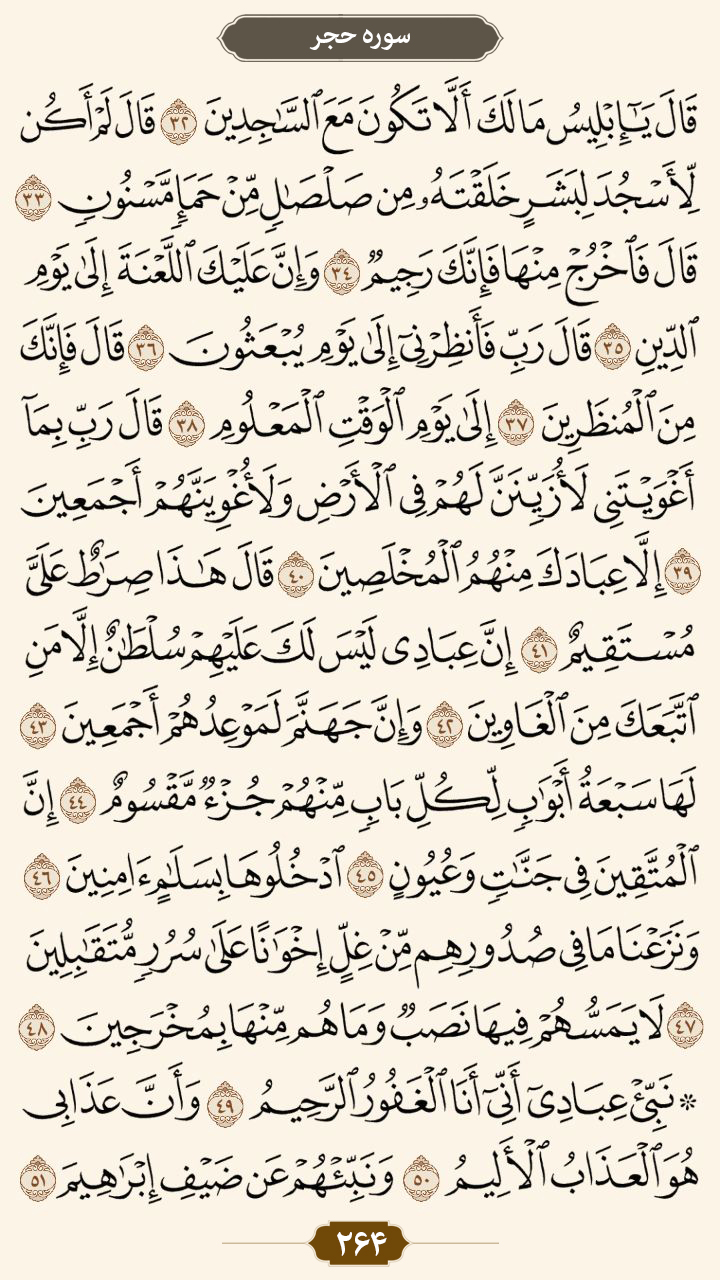 سوره حجر
قَالَ يَـٰٓإِبْلِيسُ مَا لَكَ أَلَّا تَكُونَ مَعَ ٱلسَّـٰجِدِينَ ٣٢ قَالَ لَمْ أَكُن
لِّأَسْجُدَ لِبَشَرٍ خَلَقْتَهُۥ مِن صَلْصَـٰلٍ مِّنْ حَمَإٍ مَّسْنُونٍ ٣٣
قَالَ فَٱخْرُجْ مِنْهَا فَإِنَّكَ رَجِيمٌ ٣٤ وَإِنَّ عَلَيْكَ ٱللَّعْنَةَ إِلَىٰ يَوْمِ
ٱلدِّينِ ٣٥ قَالَ رَبِّ فَأَنظِرْنِىٓ إِلَىٰ يَوْمِ يُبْعَثُونَ ٣٦ قَالَ فَإِنَّكَ
مِنَ ٱلْمُنظَرِينَ ٣٧ إِلَىٰ يَوْمِ ٱلْوَقْتِ ٱلْمَعْلُومِ ٣٨ قَالَ رَبِّ بِمَآ
أَغْوَيْتَنِى لَأُزَيِّنَنَّ لَهُمْ فِى ٱلْأَرْضِ وَلَأُغْوِيَنَّهُمْ أَجْمَعِينَ
٣٩ إِلَّا عِبَادَكَ مِنْهُمُ ٱلْمُخْلَصِينَ ٤٠ قَالَ هَـٰذَا صِرَٰطٌ عَلَىَّ
مُسْتَقِيمٌ ٤١ إِنَّ عِبَادِى لَيْسَ لَكَ عَلَيْهِمْ سُلْطَـٰنٌ إِلَّا مَنِ
ٱتَّبَعَكَ مِنَ ٱلْغَاوِينَ ٤٢ وَإِنَّ جَهَنَّمَ لَمَوْعِدُهُمْ أَجْمَعِينَ ٤٣
لَهَا سَبْعَةُ أَبْوَٰبٍ لِّكُلِّ بَابٍ مِّنْهُمْ جُزْءٌ مَّقْسُومٌ ٤٤ إِنَّ
ٱلْمُتَّقِينَ فِى جَنَّـٰتٍ وَعُيُونٍ ٤٥ ٱدْخُلُوهَا بِسَلَـٰمٍ ءَامِنِينَ ٤٦
وَنَزَعْنَا مَا فِى صُدُورِهِم مِّنْ غِلٍّ إِخْوَٰنًا عَلَىٰ سُرُرٍ مُّتَقَـٰبِلِينَ
٤٧ لَا يَمَسُّهُمْ فِيهَا نَصَبٌ وَمَا هُم مِّنْهَا بِمُخْرَجِينَ ٤٨
* نَبِّئْ عِبَادِىٓ أَنِّىٓ أَنَا ٱلْغَفُورُ ٱلرَّحِيمُ ٤٩ وَأَنَّ عَذَابِى
هُوَ ٱلْعَذَابُ ٱلْأَلِيمُ ٥٠ وَنَبِّئْهُمْ عَن ضَيْفِ إِبْرَٰهِيمَ ٥١
۲۶۴